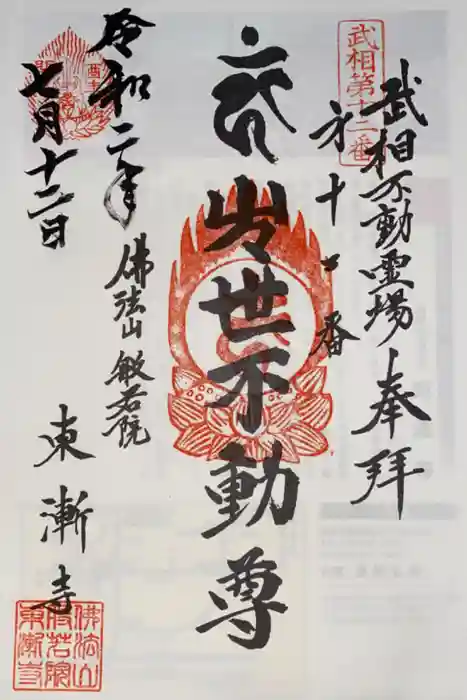 武相不動霊場 奉拜
武相第十二番
第十二番
出世不動尊
令和二年
七月十二日
佛法山 般若院
東漸寺
佛法山
般若院
東漸寺